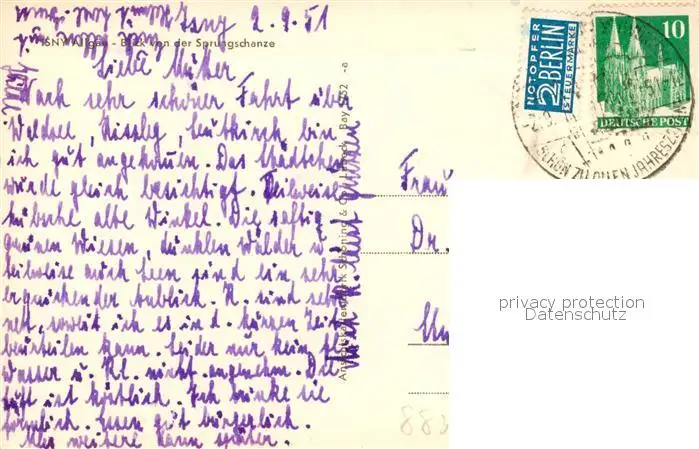 Isny 2.9.51
ISNY/Allgäu - Blick von der Sprungschanze
Liebe Mutter
Nach sehr schöner Fahrt über
Waldsee, Kissleg, Leutkirch bin
ich gut angekommen. Das Städtchen
wurde gleich besichtigt. Teilweise
hübsche alte Winkel. Die saftig
grünen Wiesen, dunklen Wälder u
teilweise auch Seen sind ein sehr
erquickender Anblick. K. sind sehr
nett, soweit ich es in d. kurzen Zeit
beurteilen kann. Leider nur kein fl.
Wasser u. Kl. nicht angenehm. Die
Luft ist köstlich. Ich trinke sie
förmlich. Essen gut bürgerlich.
Alles weitere dann später.
Schöning & Co
Bay 552 -a
NOTOPFER
2 BERLIN
STEUERMARKE
10
DEUTSCHE POST
SCHÖN ZU ALLEN JAHRESZEITEN
Frau
Dr.
privacy protection
Datenschutz